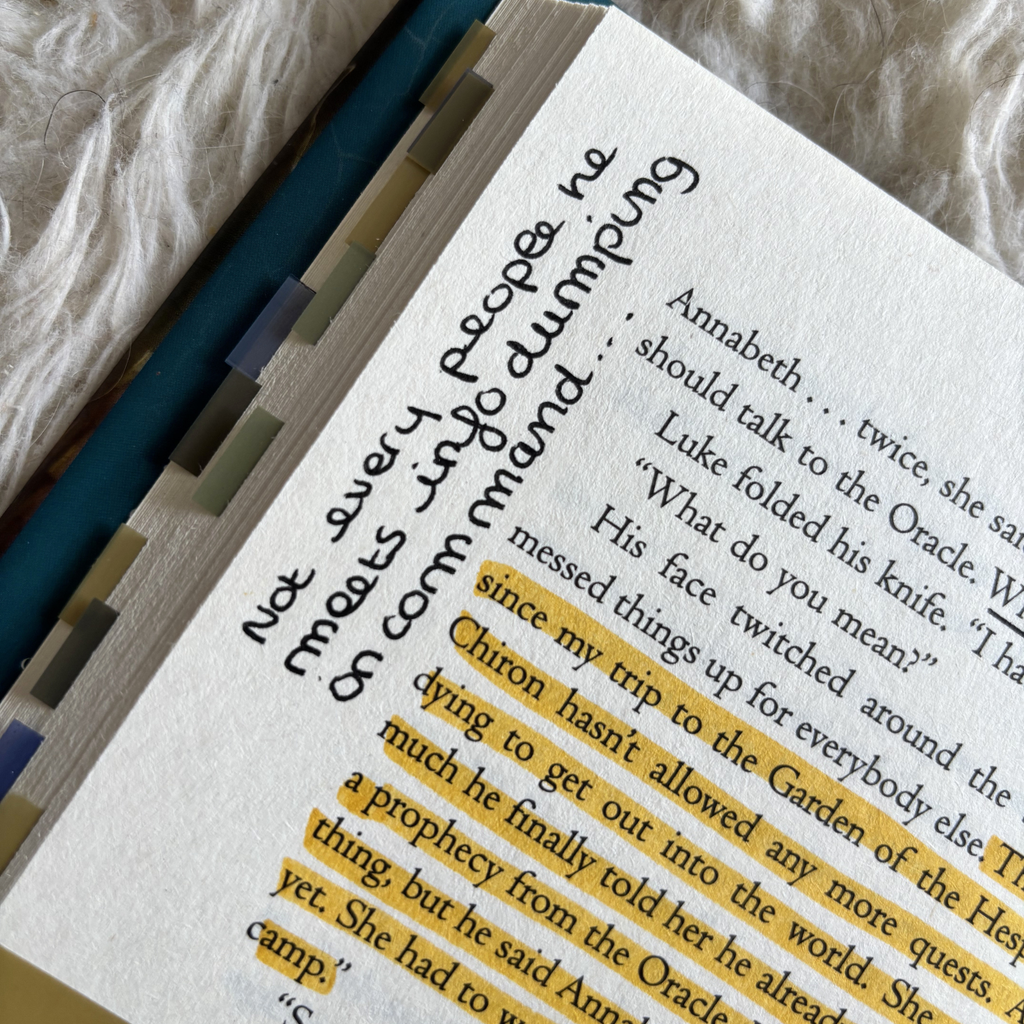 Not every people he
meets info dumping
on command...
Annabeth . . . twice, she
should talk to the Oracle.
Luke folded his knife. “I
“What do you mean?”
His face twitched around the
messed things up for everybody else.
since my trip to the Garden of the
Chiron hasn’t allowed any more quests.
dying to get out into the world. She
much he finally told her he
a prophecy from the Oracle.
thing, but he said
yet. She had to
camp.”